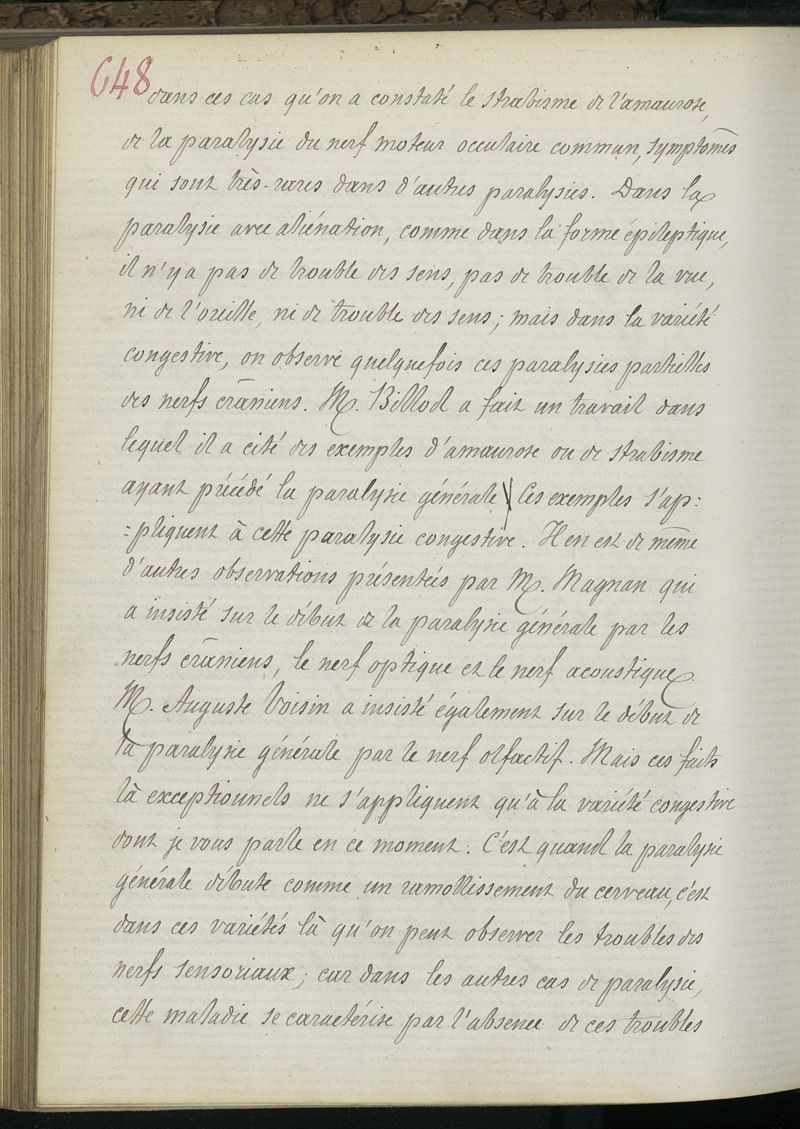 648
dans ces cas qu'on a constaté le strabisme de l'amaurose,
de la paralysie du nerf moteur occulaire commun, symptômes
qui sont très-rares dans d'autres paralysies. Dans la
paralysie avec aliénation, comme dans la forme épileptique,
il n'y a pas de trouble des sens, pas de trouble de la vue,
ni de l'oreille, ni de trouble des sens; mais dans la variété
congestive, on observe quelquefois ces paralysies partielles
des nerfs crâniens. M. Billod a fait un travail dans
lequel il a cité des exemples d'amaurose ou de strabisme
ayant précédé la paralysie générale. Ces exemples s'ap=
=pliquent à cette paralysie congestive. Il en est de même
d'autres observations présentées par M. Magnan qui
a insisté sur le début de la paralysie générale par les
nerfs crâniens, le nerf optique et le nerf acoustique.
M. Auguste Voisin a insisté également sur le début de
la paralysie générale par le nerf olfactif. Mais ces faits
là exceptionnels ne s'appliquent qu'à la variété congestive
dont je vous parle en ce moment. C'est quand la paralysie
générale débute comme un ramollissement du cerveau, c'est
dans ces variétés là qu'on peut observer les troubles des
nerfs sensoriaux; car dans les autres cas de paralysie,
cette maladie se caractérise par l'absence de ces troubles